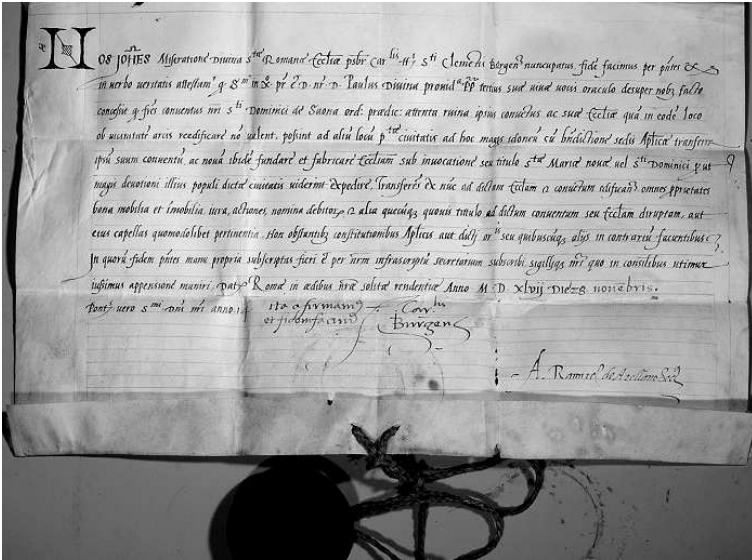 NOS JOHES Miseratione Divina s.tae Romanae Eccliae psbr Car.lis tt.i s.ti Clemetis Borgeñ nuncupatus, fidē facimus per pñtes
in verbo veritatis attestam.r q. S.m in D. nr. D. Paulus Divina provid.a PP tertius suae vivae vocis oraculo desuper nobis facto
concessit q. fr̄es conventus nri s.ti Dominici de Saona ord: praedic: attenta ruina ipsius convētus ac suae Eccliae quā in eodē loco
ob vicinitatē arcis reedificare nō valent, possint ad aliū locū p.tae civitatis ad hoc magis idoneū cū bn̄dictione sedis Aplicae transferre
ipsū suum conventū, ac novā ibidē fundare et fabricare Eccliam sub invocatione seu titulo s.tae Mariae novae vel s.ti Dominici put
magis devotioni illius populi dictae civitatis viderint expedire, Transferēs ex nūc ad dictam Ecclam et convētum edificañ. omnes pprietates
bona mobilia et īmobilia, iura, actiones, nomina debitor, et alia quecūq3 quovis titulo ad dictum conventum seu Ecclam diruptam, aut
eius capellas quomodolibet pertinentia. Non obstantib3 constitutionibus Aplicis aut dicti or.is seu quibuscūq3 alijs in contrariū facientibus
In quorū fidem pñtes manu propria subscriptas fieri et per nrm infrascriptū secretarium subscribi sigilliq3 nri quo in consilibus utimur
iussimus appensione muniri. Dat. Romae in aedibus nrae solitae residentiae Anno M D xlvij Die 28 novēbris.
Pont. vero s.mi Dni nri anno. 14
ita affirmam.s
et fidem facim.s
Car.lis
Burgen
A. Ramir.z de Arellano Sec.